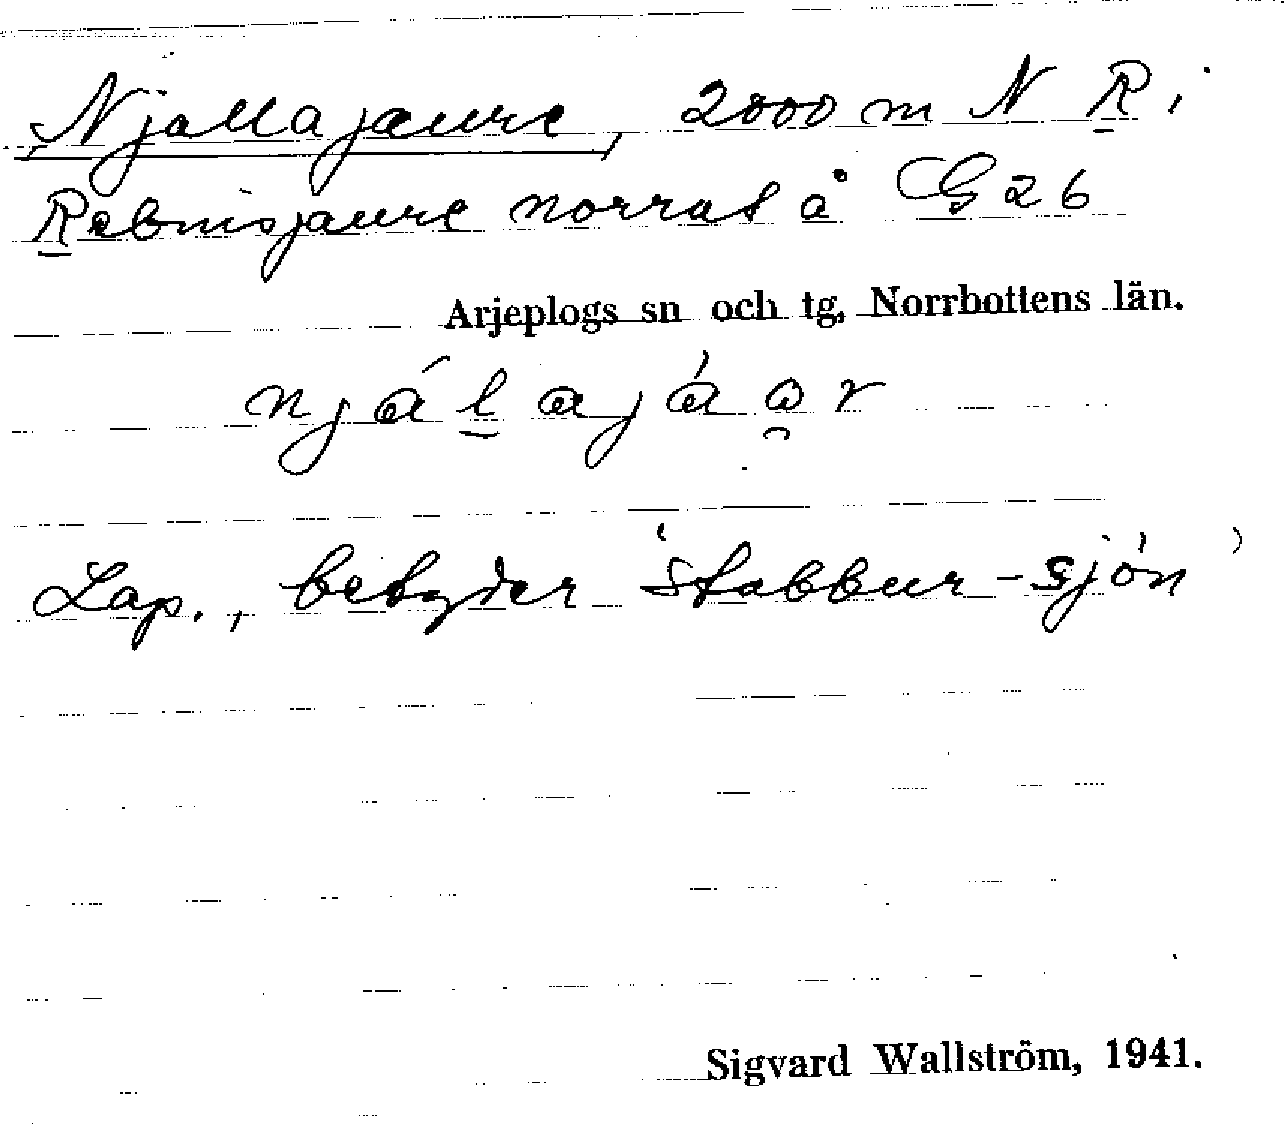 Njallajaure, 2000 m N R i
Rebnisjaure norrut å G 26
Arjeplogs sn och tg, Norrbottens län.
njálajáor
Lap., betyder 'stabbur-sjön'
Sigvard Wallström, 1941.